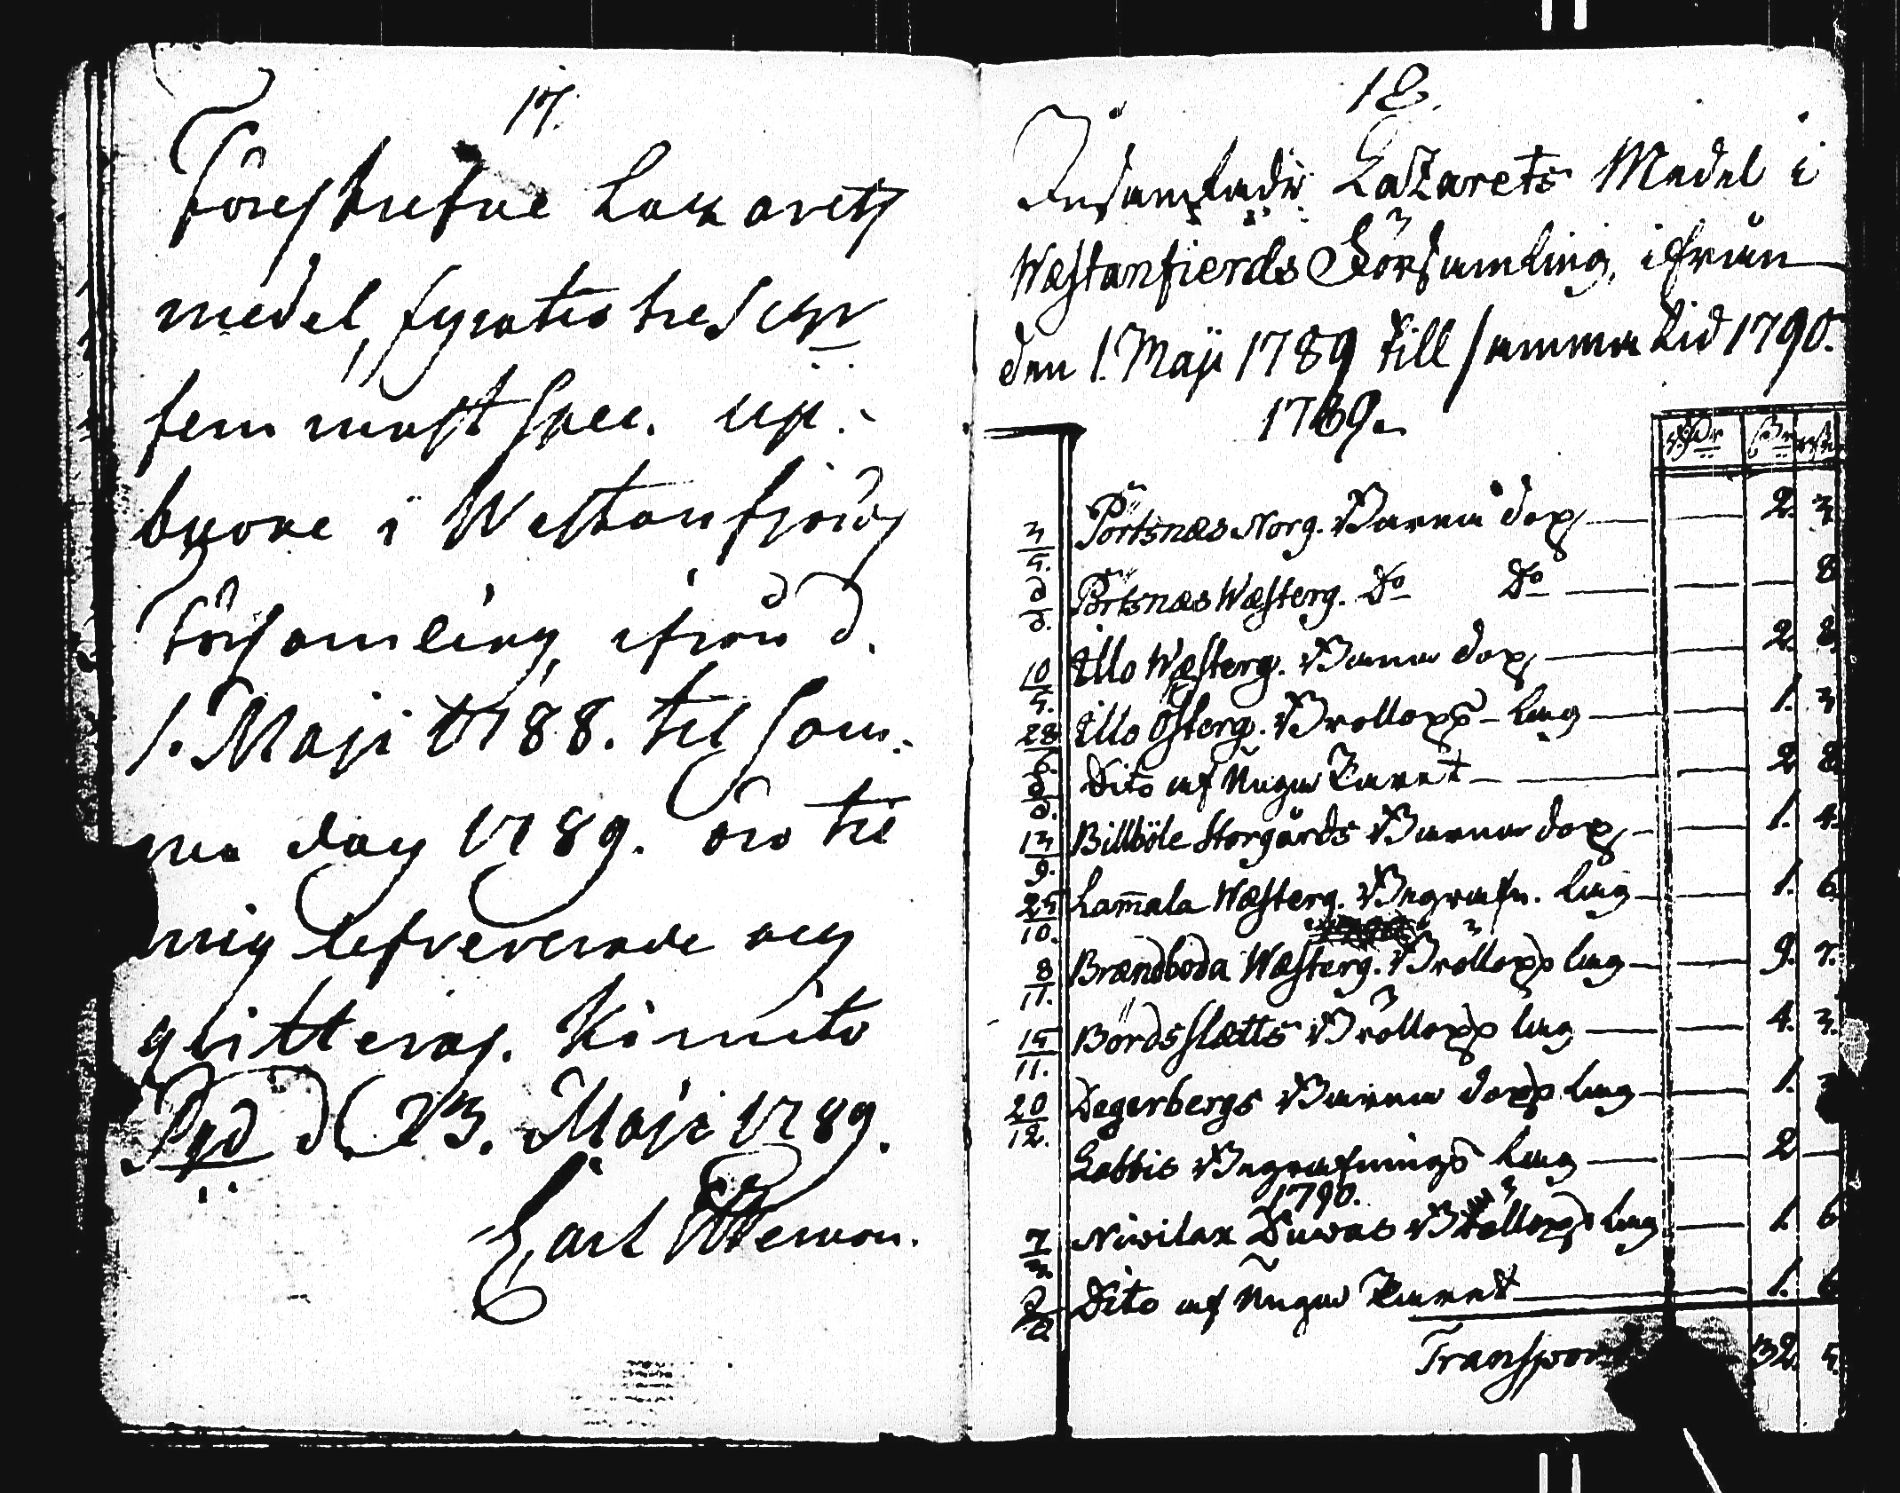 17.
Föreskrefne Lazaretts
medel, fyratio tre s:gr
fem rnst Spec. up-
burne i Westanfjords
Församling, ifrån d.
1. Maji 1788. til sam-
ma dag 1789. äro til
mig lefvererade och
qvitteras. Kimito
Pgd d. 23. Maji 1789.
Carl
18.
Insamlade Lazarets Medel i
Westanfierds Församling, ifrån
den 1. Maji 1789 till samma tid 1790.
1789.
3/5. Pörtsnæs Norg. Barna dop 2. 3
d/d. Pörtsnæs Wæsterg. Do Do 8
10/5. Illo Wæsterg. Barna dop 2. 8
28/6. Illo Österg. Brollops-lag 1. 3
d/d. Dito af Unga Paret 2 8
13/9. Billböle Storgårds Barna dop 1. 4.
25/10. Lam̄ala Wæsterg. Begrafn. lag 1. 6
8/11. Brændboda Wæsterg. Bröllops lag 9. 7.
15/11. Bordsslætts Bröllops lag 4. 3.
20/12. Degerbergs Barna dops lag 1.
Labbis Begrafnings lag 2 —
1790.
7/3. Niwilax Duwas Bröllops lag 1. 6
d/d Dito af Unga Paret 1. 6
Transport 32. 5